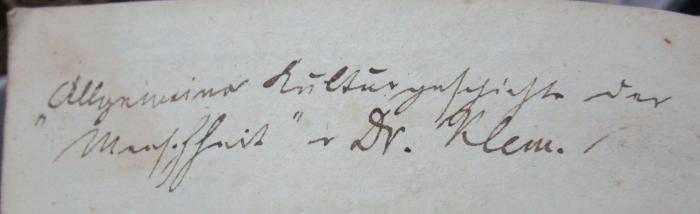 Allgemeine Kulturgeschichte der
"Menschheit" v Dr. Klem.